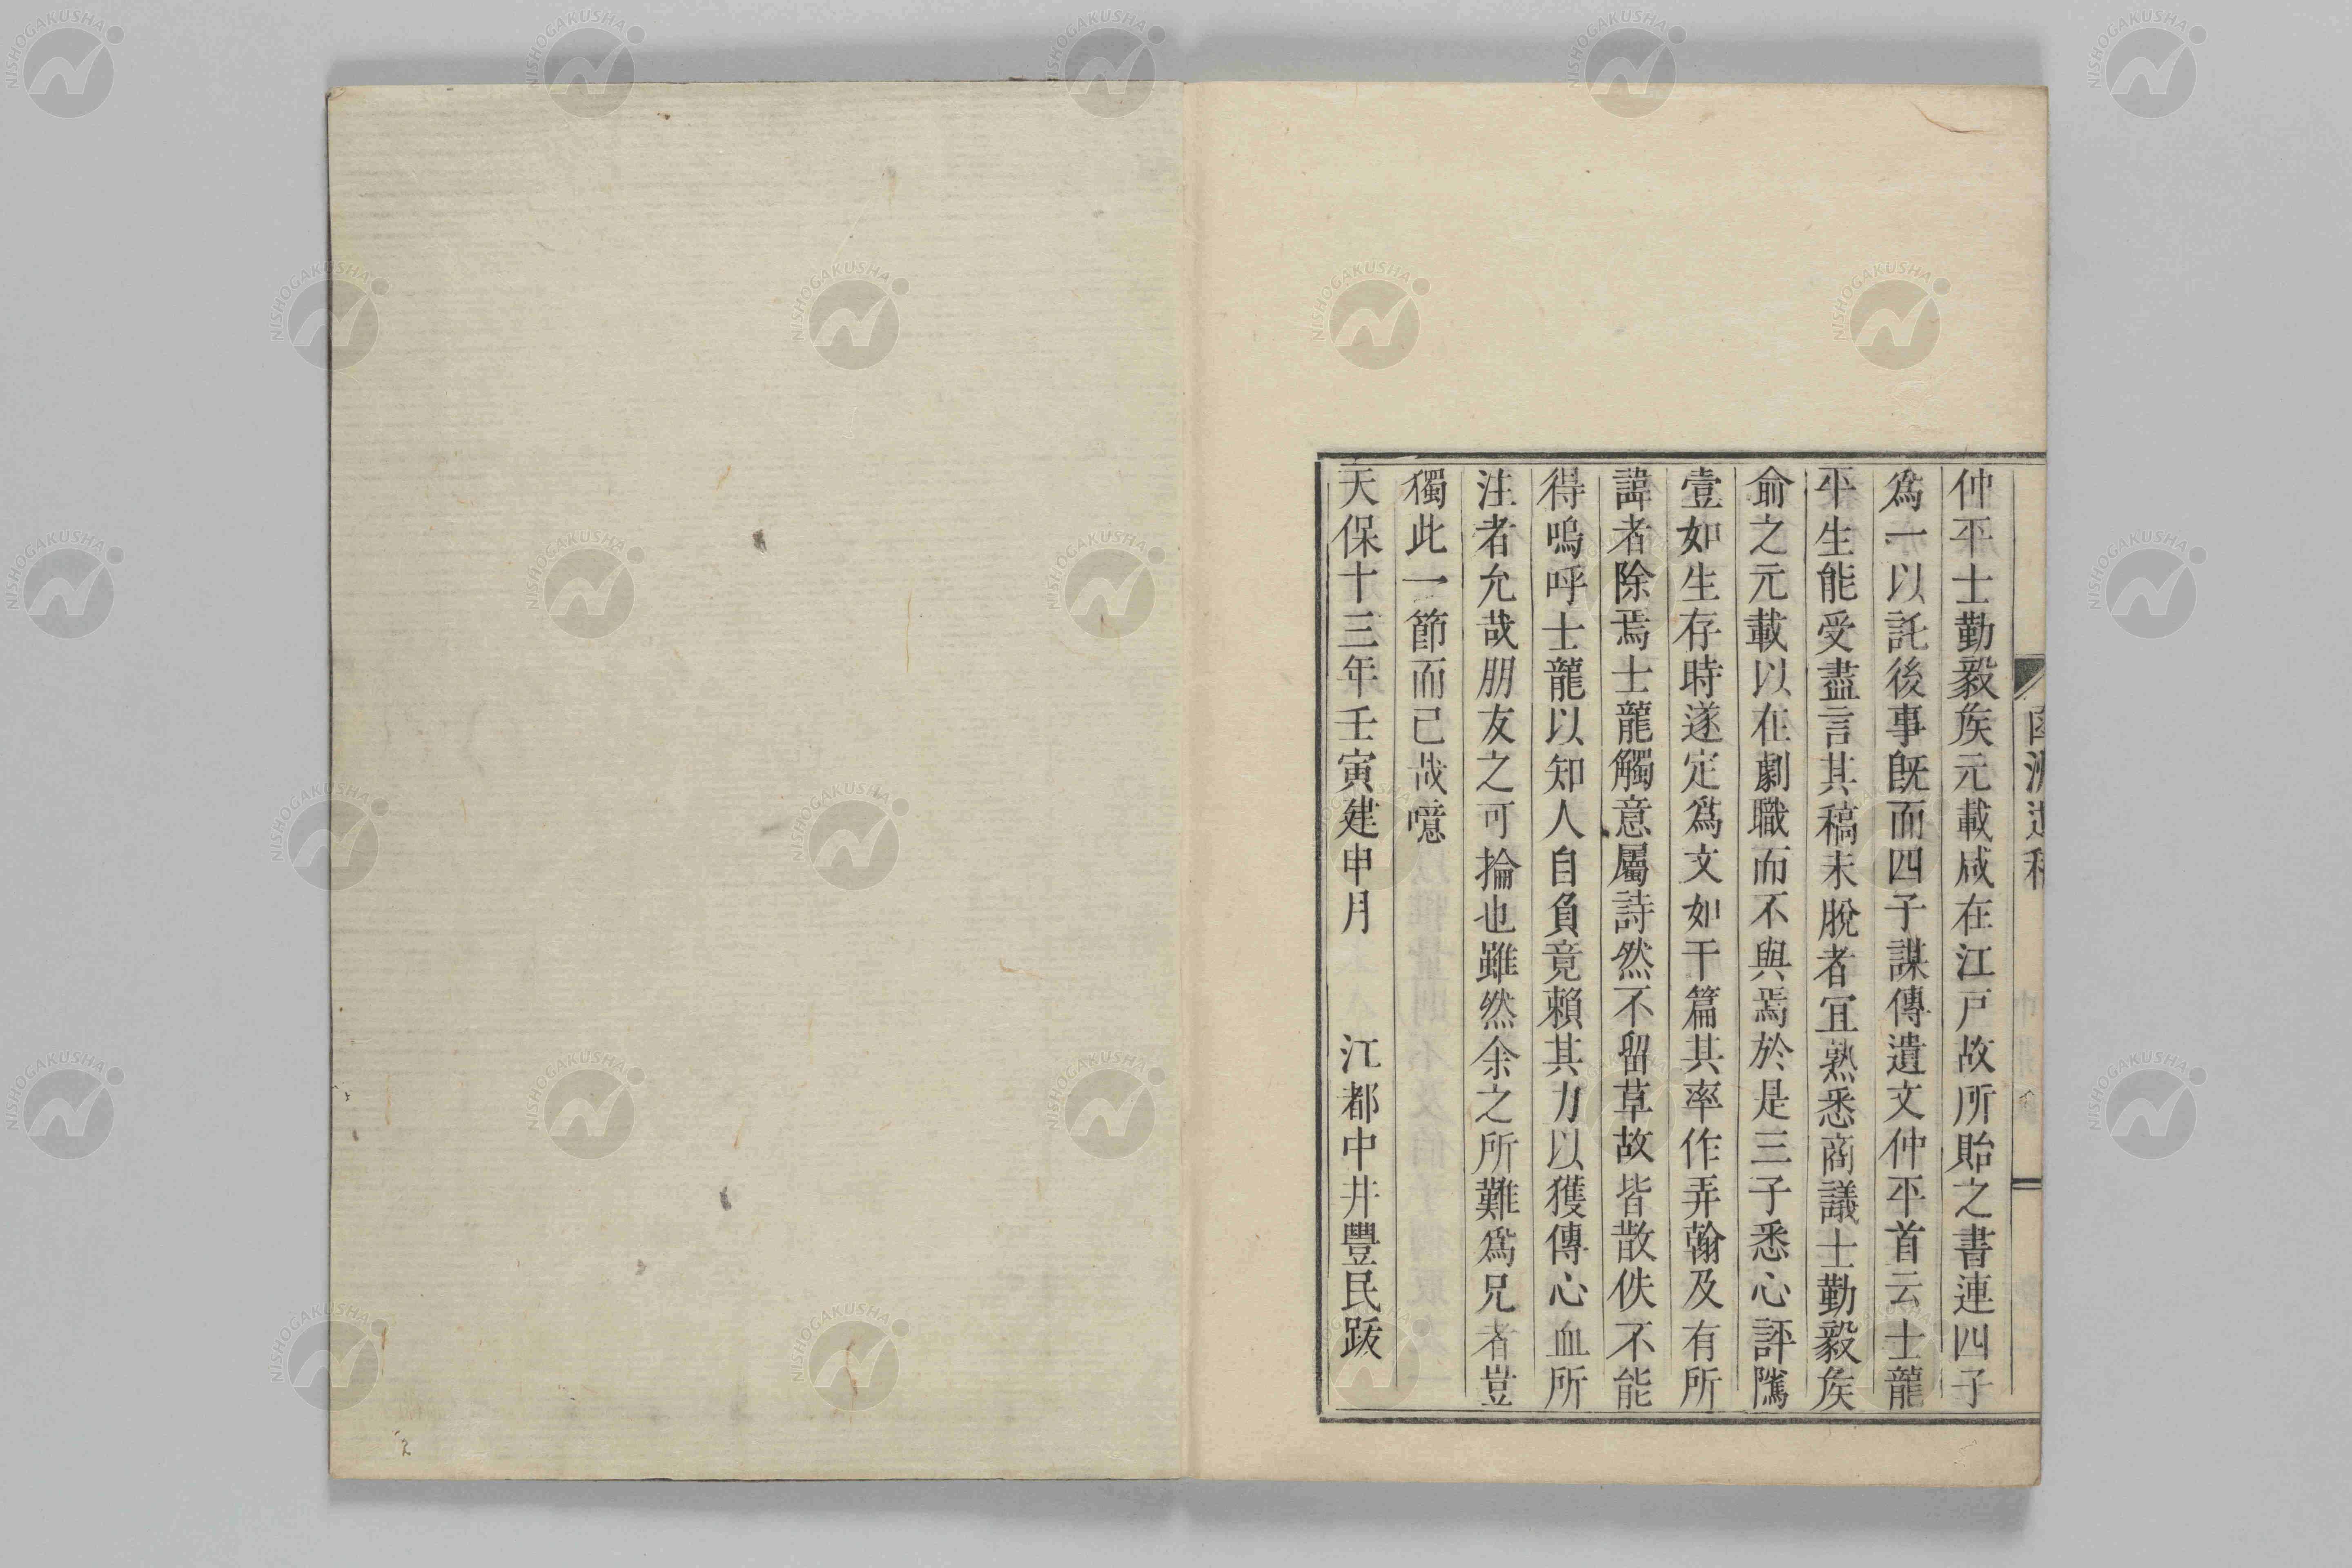 仲平士勤毅矦元載咸在江戸故所貽之書連四子
爲一以託後事旣而四子謀傳遺文仲平首云士龍
平生能受盡言其稿未脫者宜熟悉商議士勤毅矦
俞之元載以在劇職而不與焉於是三子悉心評隲
壹如生存時遂定爲文如干篇其率作弄翰及有所
諱者除焉士龍觸意屬詩然不留草故皆散佚不能
得嗚呼士龍以知人自負竟賴其力以獲傳心血所
注者允哉朋友之可掄也雖然余之所難爲兄者豈
獨此一節而已哉噫
天保十三年壬寅建申月 江都中井豐民跋
NISHOGAKUSHA